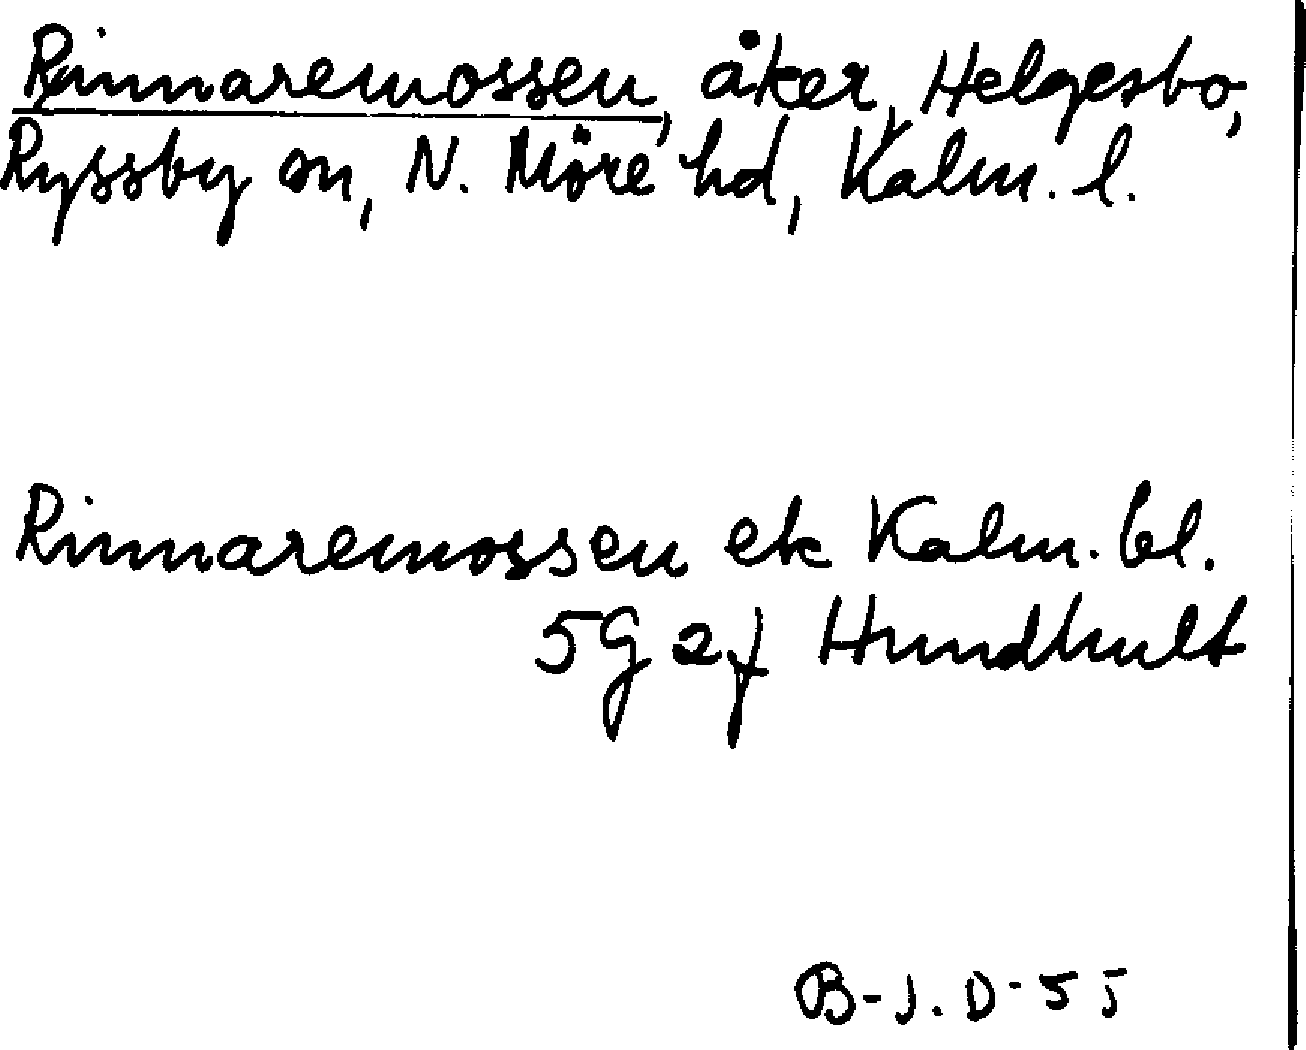 Rinnaremossen, åker, Helgesbo,
Ryssby sn, N. Möre hd, Kalm. l.
Rinnaremossen ek Kalm. bl.
5G 2f Hundhult
B-J.D-55